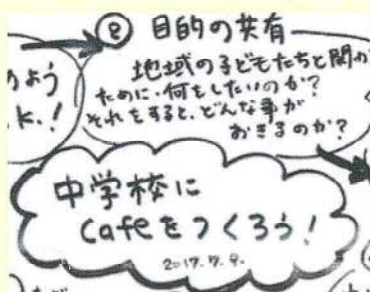 ② 目的の共有
地域の子どもたちと関の
ために、何をしたいのか?
それをすると、どんな事が
おきるのか?
のよう
k.!
中学校に
cafeをつくろう!
2017.7.9.